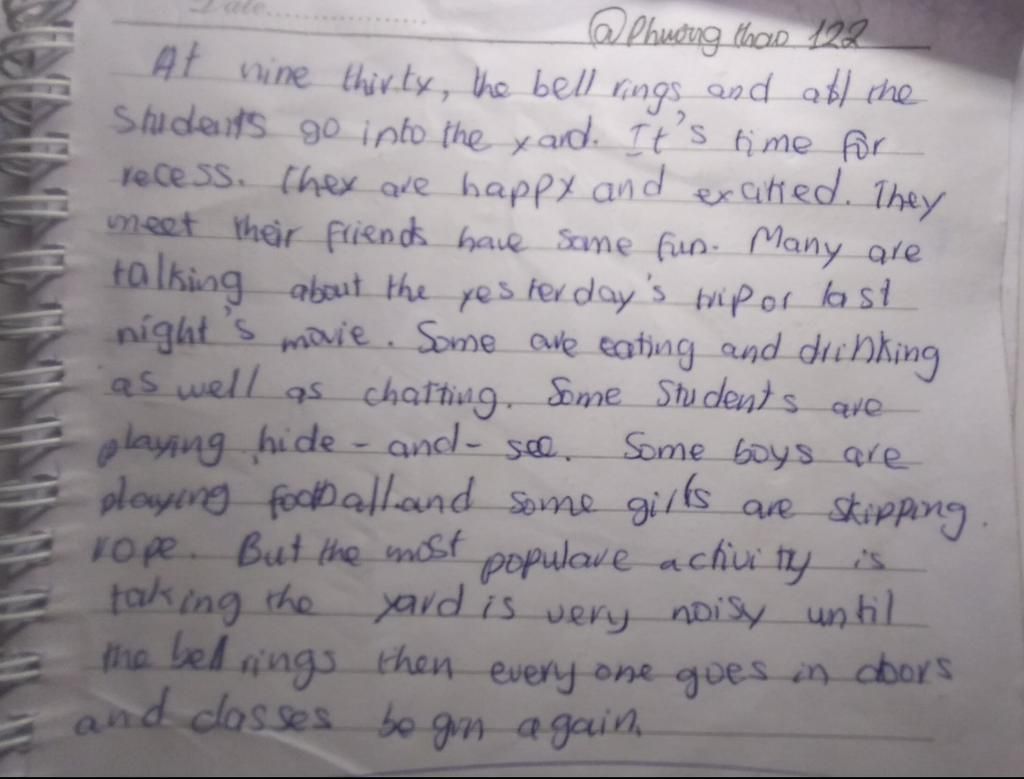 Date..............................
@Phương thao 122
At nine thirty, the bell rings and all the
students go into the yard. It's time for
recess. They are happy and excitied. They
meet their friends have some fun. Many are
talking about the yesterday's trip or last
night's movie. Some are eating and drinking
as well as chatting. Some students are
playing hide - and - see. Some boys are
playing football and some girls are skipping.
rope. But the most populare activity is
taking the yard is very noisy until
the bell rings then every one goes in doors
and classes begin again.